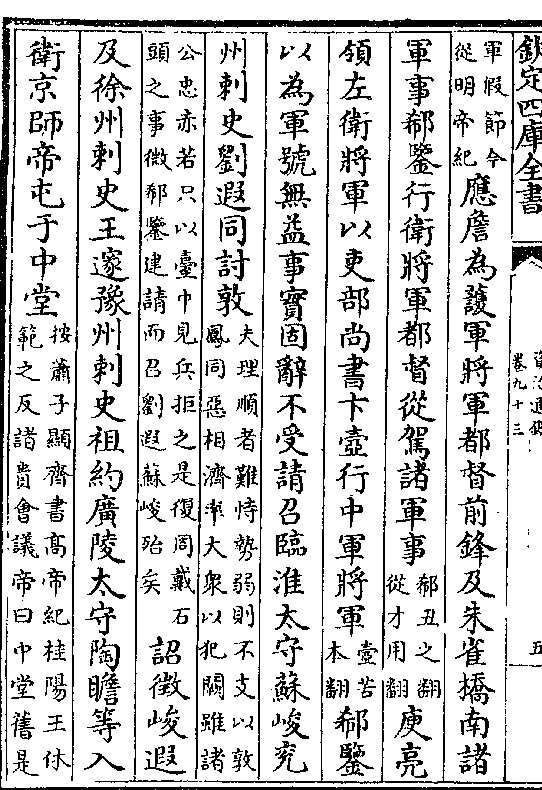 欽定四庫全書
資治通鑑
卷九十三
五
軍假節今
從明帝紀
應詹為護軍將軍都督前鋒及朱雀橋南諸
軍事郗鑒行衛將軍都督從駕諸軍事
郗丑之翻
從才用翻
庾亮
領左衛將軍以吏部尚書卞壼行中軍將軍
壼苦
本翻
郗鑒
以為軍號無益事實固辭不受請召臨淮太守蘇峻兖
州刺史劉遐同討敦
夫理順者難恃勢弱則不支以敦
鳳同惡相濟率大衆以犯闕雖諸
公忠亦若只以臺中見兵拒之是復周戴石
頭之事微郗鑒建請而召劉遐蘇峻殆矣
詔徵峻遐
及徐州刺史王邃豫州刺史祖約廣陵太守陶瞻等入
衛京師帝屯于中堂
按蕭子顯齊書高帝紀桂陽王休
範之反諸貴會議帝曰中堂舊是